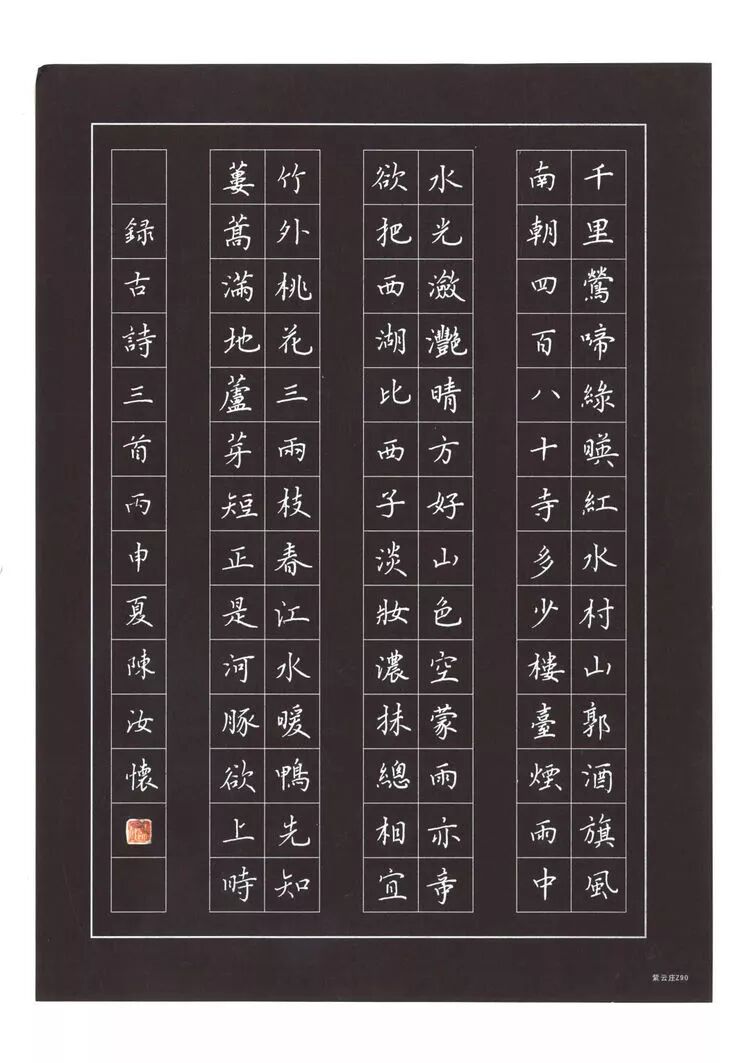 千里鶯啼綠暎紅水村山郭酒旗風
南朝四百八十寺多少樓臺煙雨中
水光瀲灧晴方好山色空蒙雨亦竒
欲把西湖比西子淡妝濃抹總相宜
竹外桃花三兩枝春江水暖鴨先知
蔞蒿滿地蘆芽短正是河豚欲上時
録古詩三首丙申夏陳汝懷
紫云庄Z90